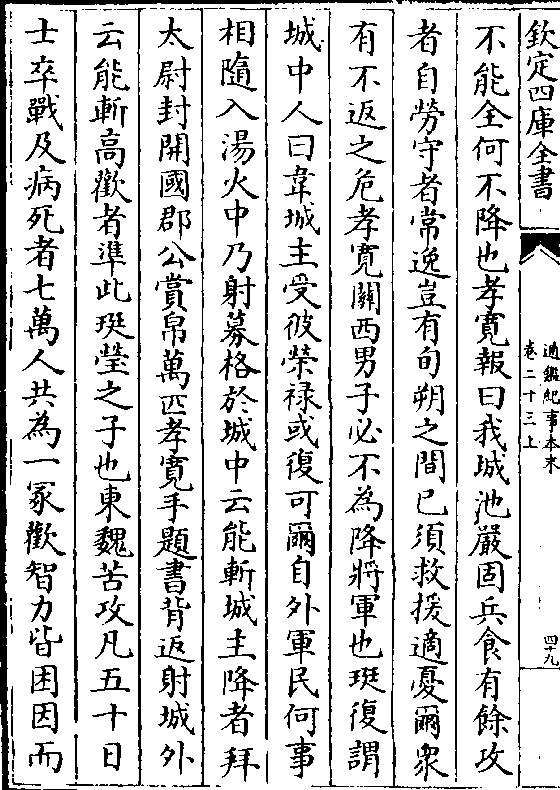 欽定四庫全書
通鑑紀事本末
卷二十三上
四十九
不能全何不降也孝寛報曰我城池嚴固兵食有餘攻
者自勞守者常逸豈有旬朔之間已須救援適憂爾衆
有不返之危孝寛關西男子必不為降將軍也珽復謂
城中人曰韋城主受彼榮祿或復可爾自外軍民何事
相隨入湯火中乃射募格於城中云能斬城主降者拜
太尉封開國郡公賞帛萬匹孝寛手題書背返射城外
云能斬高歡者準此珽瑩之子也東魏苦攻凡五十日
士卒戰及病死者七萬人共為一冢歡智力皆困因而